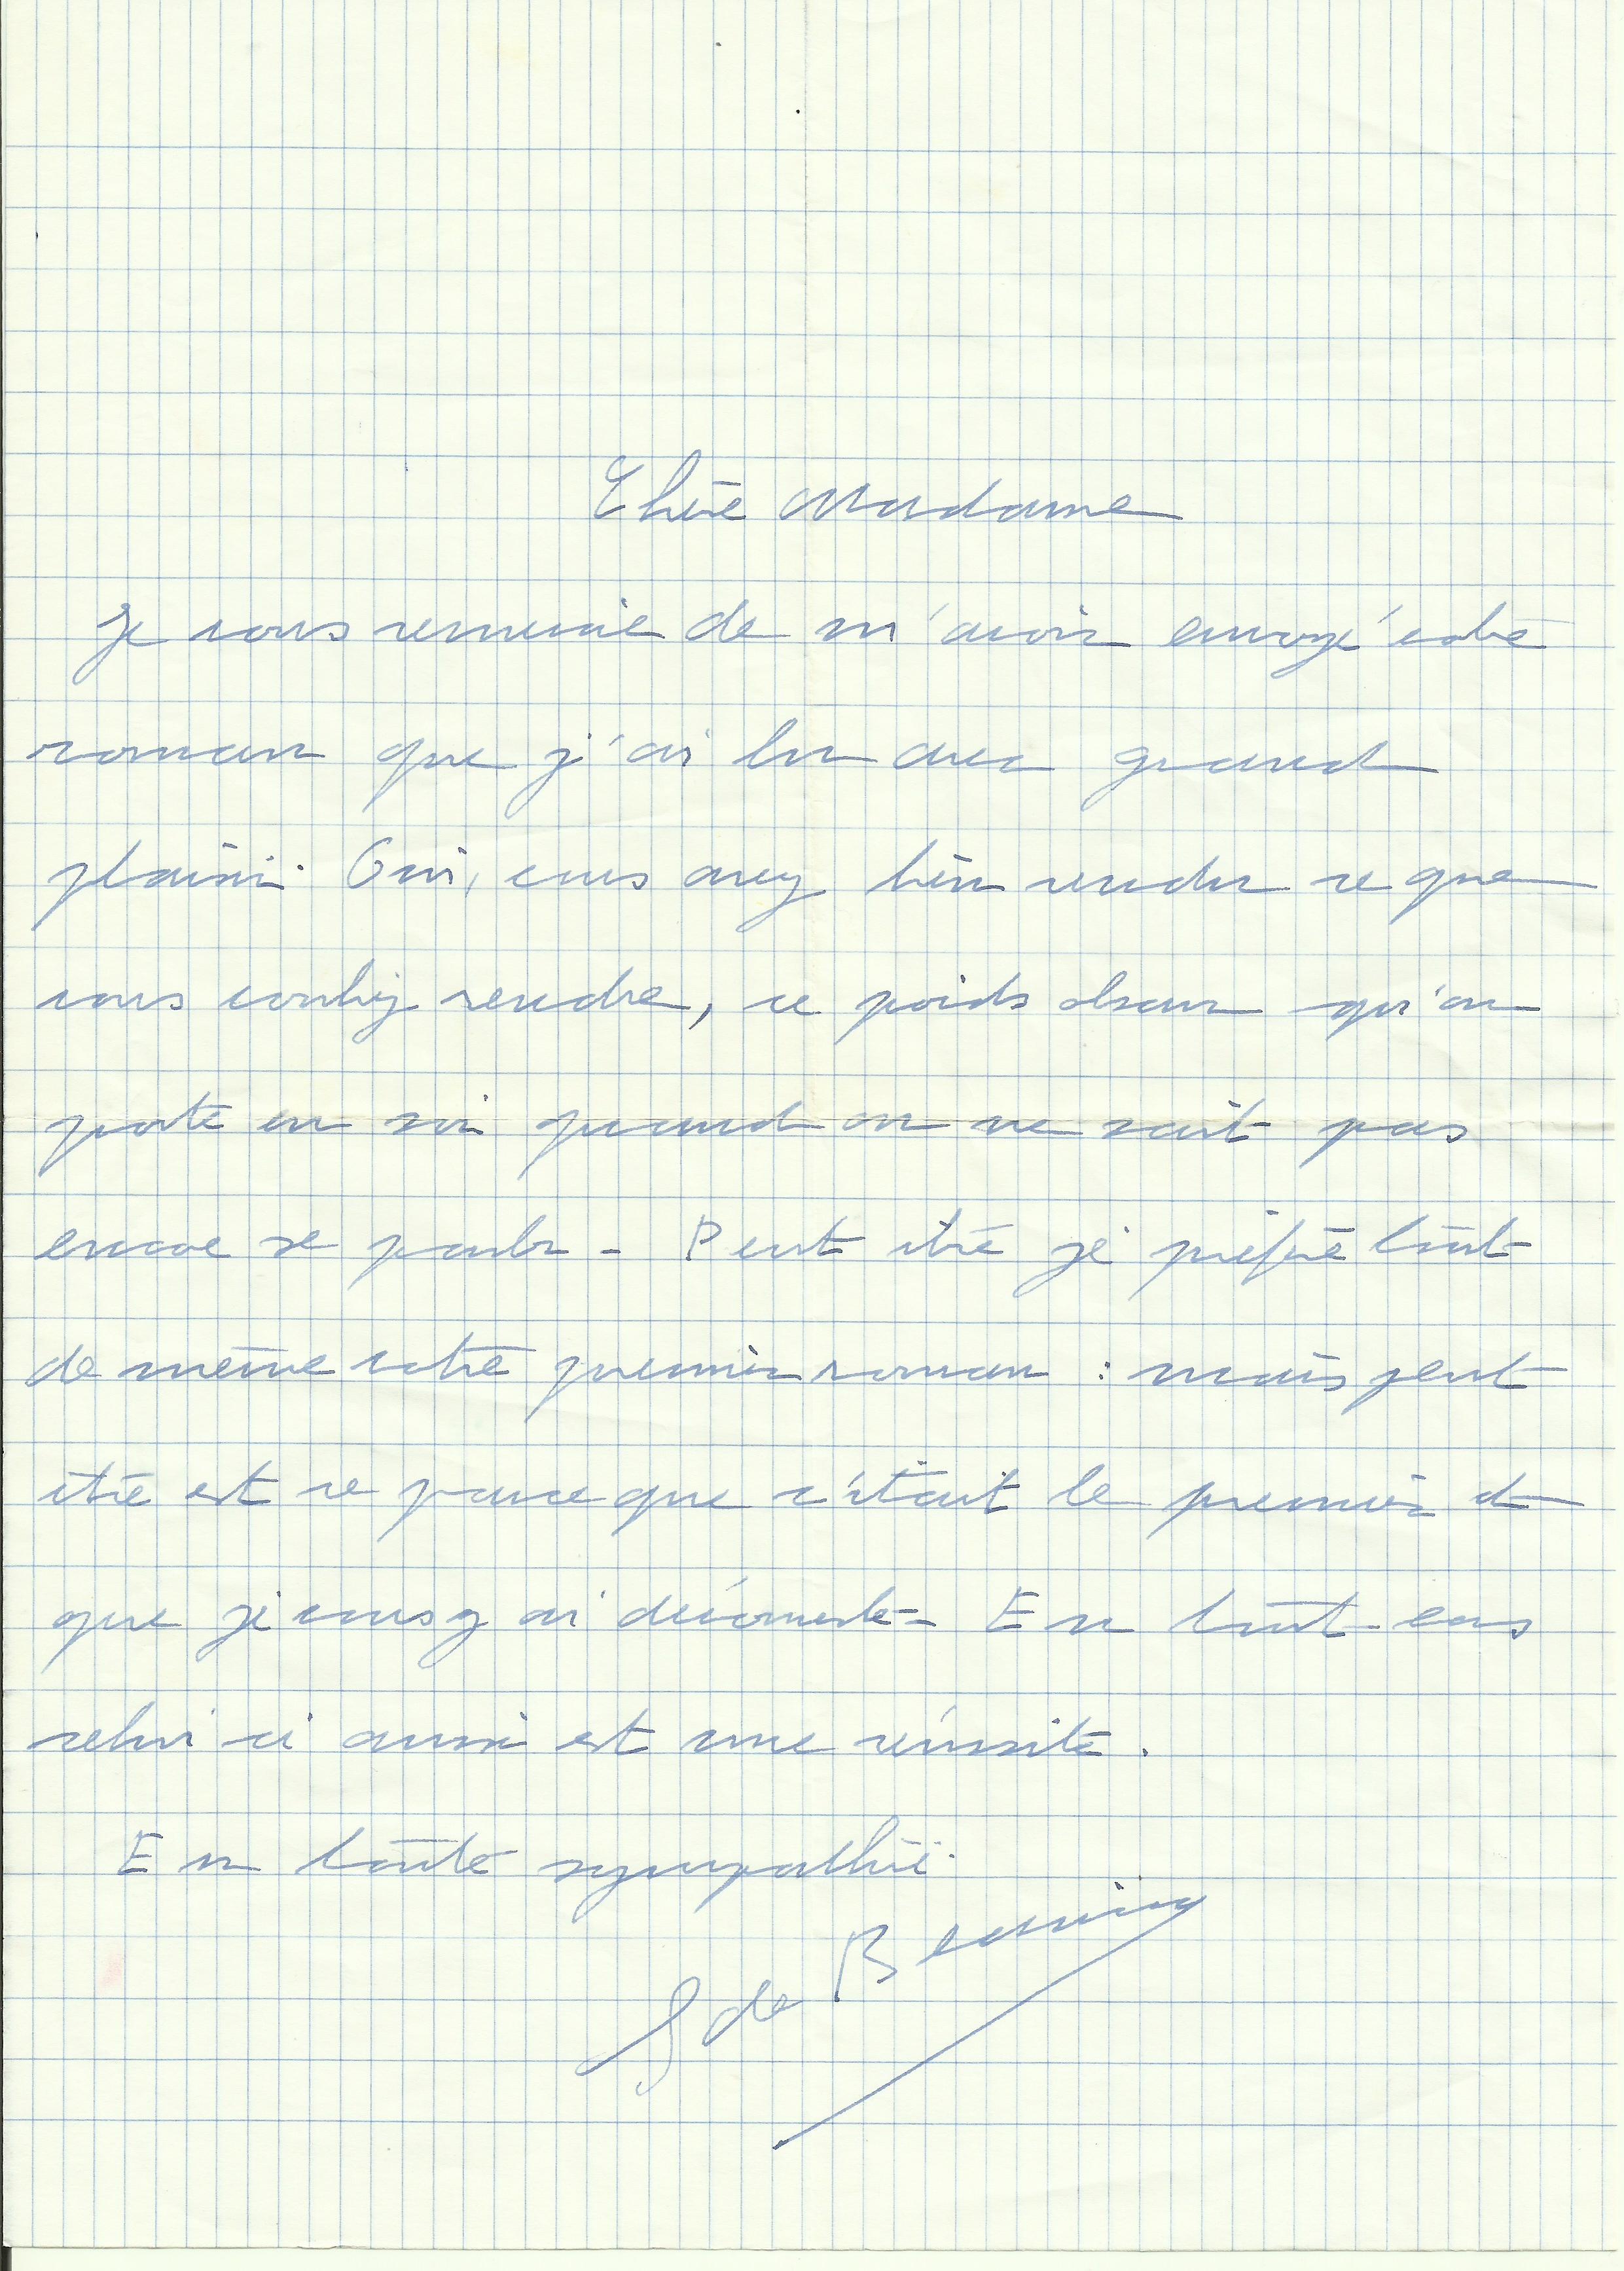 Chère Madame
Je vous remercie de m'avoir envoyé votre
roman que j'ai lu avec grand
plaisir. Oui, vous avez bien rendu ce que
vous vouliez rendre, ce poids obscur qu'on
porte en soi quand on ne sait pas
encore se parler - Peut être je préfère tout
de même votre premier roman : mais peut
être est ce parce que c'était le premier et
que je vous y ai découverte - En tout cas
celui ci aussi est une réussite.
En toute sympathie.
S de Beauvoir